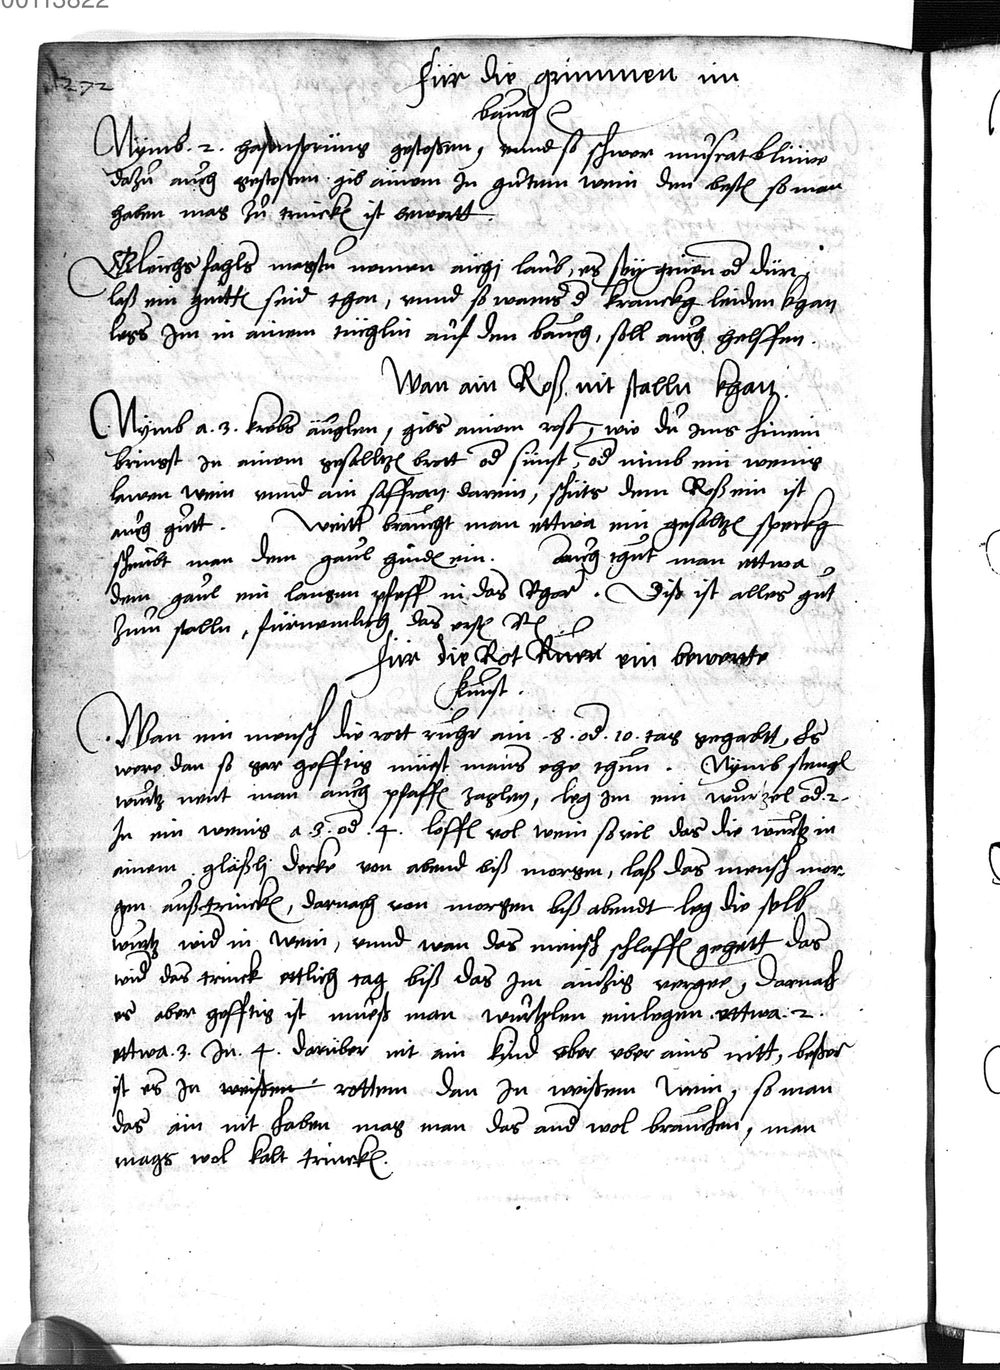 00113822
272
Für die grimmen im
bauch
Nÿmb .2. hasensprüng gestoßen, vnnd so schwer muscatblüüe
dazů auch gestoßen gib ainem In gůtem wein den bestn so man
haben mag zů trinckn ist bewertt.
Gleichs fahls magstu nemen aichj laub, es seÿ grüen od dürr,
laß ein gutt seid than, vnnd so warms d kranckh leiden khan
legs Im in ainem tüchlin auf den bauch, soll auch helffen.
Wan ain Roß nit stalln khan.
Nÿmb a .3. krebs äuglen, gibs ainem roß, wie du ims hinein
bringst In ainem gesaltzn brott od sunst, od nimb ein wenig
lawen wein vnnd ain saffran darein, schüts dem Roß ein ist
auch gůtt. Weitt braucht man ettwa ein gesaltzn speckh
scheubt man dem gaul hindn ein. Auch thůt man ettwa
dem gaul ein langen pfeff in das Rhor. Diß ist alles gůt
zum stalln, fürnemlich das erst
Für die Rot Rüer ein bewerte
kunst.
Wan ein mensch die rott růhr ain .8. od .10. tag gehabtt, Es
were dan so gar hefftig müest mans ehe thun. Nÿmb stengl
wurtz nent man auch pfaffn, leg Im ein wurzel od .2.
In ein wenig a .3. od .4. löffl vol wein so vil das die wurtz in
ainem gläßlj decke von abend biß morgen, laß das mensch mor-
gen außtrinckn, darnach von morgen biß abendt leg die selb
wurtz wid in wein, vnnd wan das mensch schlaffn gehett das
wid das trinck ettlich tag biß das Im vergee, Darnach
es aber hefftig ist mueß man wurtzlen einlegen ettwa .2.
ettwa .3. In .4. darüber nit ain kind aber vber ains nitt, besser
ist es In weissen rottem dan In weissem wein, so man
das ain nit haben mag man das and wol brauchen, man
mags wol kalt trinckn.